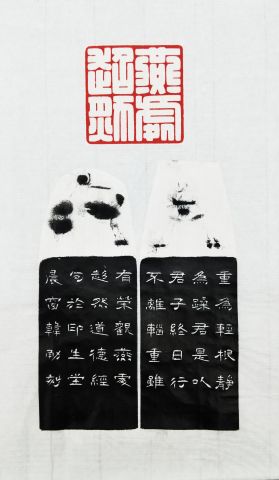 燕處
超然
重為輕根靜
為躁君是以
君子終日行
不離輜重雖
有榮觀燕處
超然道德經
句於印生堂
晨窗韓刻